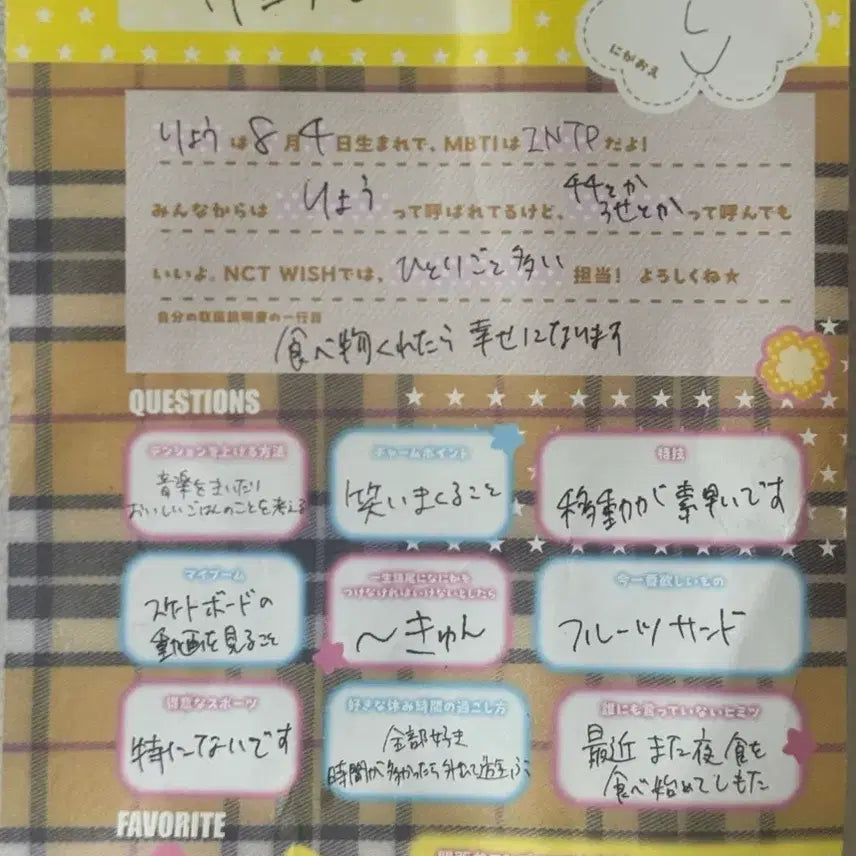 にがおえ
りょうは8月4日生まれで、MBTIはINTPだよ!
みんなからはりょうって呼ばれてるけど、
44とか
ろせとかって呼んでも
いいよ。NCT WISHでは、ひとりごと多い担当! よろしくね★
自分の取扱説明書の一行目
食べ物くれたら幸せになります
QUESTIONS
テンションを上げる方法
音楽をきいたり
おいしいごはんのことを考える
チャームポイント
笑いまくること
特技
移動が素早いです
マイブーム
スケートボードの
動画を見ること
一生語尾になにかを
つけなければいけないとしたら
〜きゅん
今一番欲しいもの
フルーツサンド
得意なスポーツ
特にないです
好きな休み時間の過ごし方
全部好き
時間が多かったら外出て遊ぶ
誰にも言っていないヒミツ
最近また夜食を
食べ始めてしもた
FAVORITE